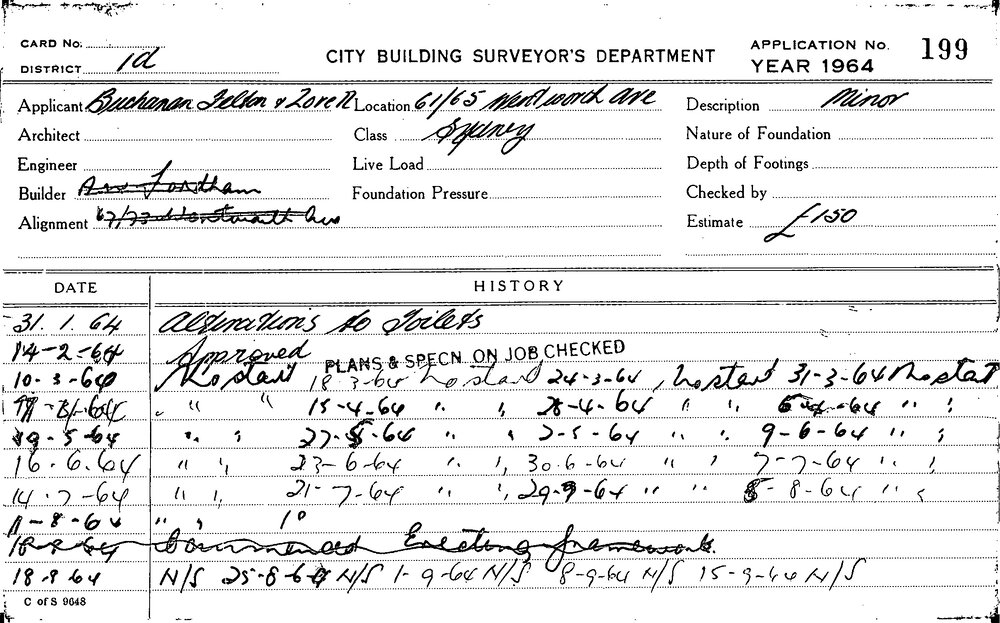 CARD No.
DISTRICT 1d
CITY BUILDING SURVEYOR'S DEPARTMENT
APPLICATION No. 199
YEAR 1964
Applicant Buchanan Felton & Lovell Location 61/65 Wentworth Ave Description Minor
Architect Class Sydney Nature of Foundation
Engineer Live Load Depth of Footings
Builder Fordham Foundation Pressure Checked by
Alignment 67/73 Wentworth Ave Estimate £150
DATE HISTORY
31.1.64 Alterations to Toilets
14-2-64 Approved PLANS & SPECN ON JOB CHECKED
10-3-64 No start 18-3-64 No start 24-3-64, No start 31-3-64 No start
" " 15-4-64 " " 28-4-64 " " 64 " "
19-5-64 " " 27-5-64 " " 2-5-64 " " 9-6-64 " "
16.6.64 " " 23-6-64 " " 30.6-64 " " 7-7-64 " "
14.7-64 " " 21-7-64 " " 64 " " 5-8-64 " "
11-8-64 " "
Commenced Erecting framework.
18.8.64 N/S 25-8-64 N/S 1-9-64 N/S 8-9-64 N/S 15-9-64 N/S
C of S 9648